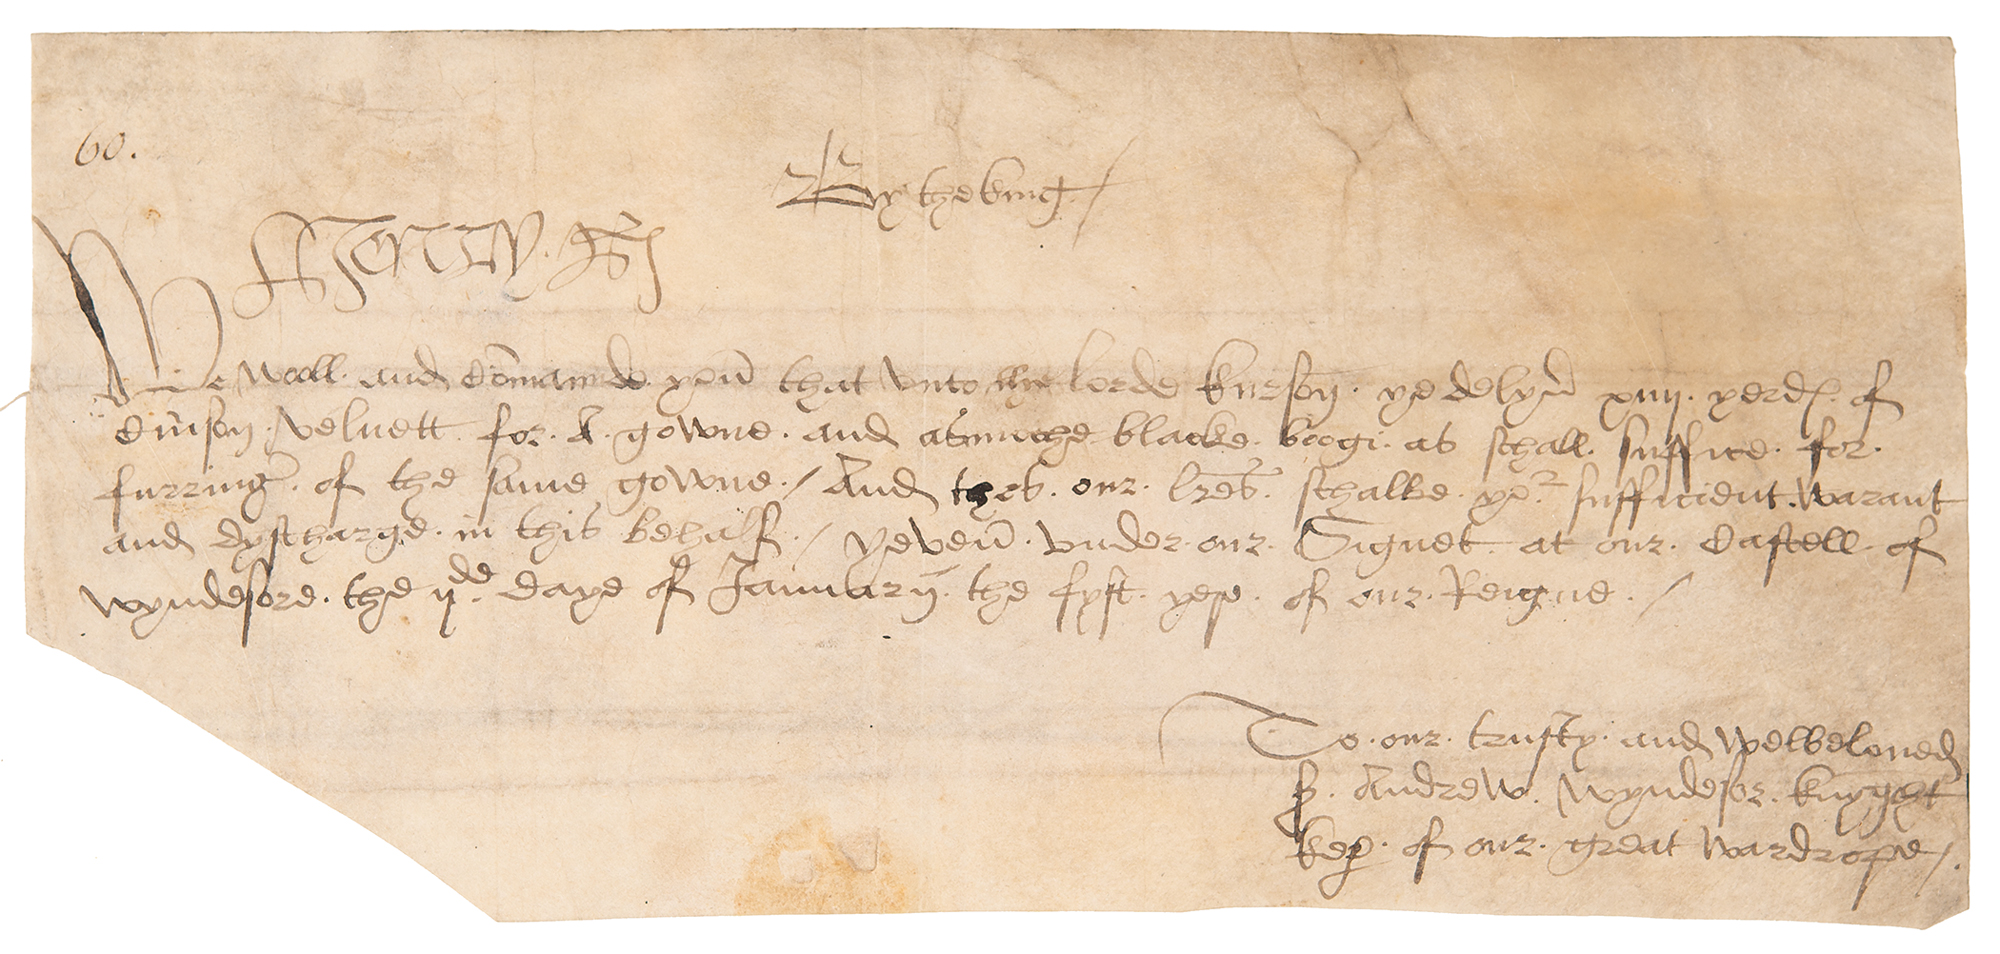 60.
By the king /
Henry R
We Woll and cōmamde yow that vnto my lorde kurson ye delyū xiiij yerdꝭ of
cūīson velvett for A gowne and asmoche blacke boogi as schall suffice for
furring of the same gowne / And thes our lres schalbe yor sufficient Warant
and dyscharge in this behalf / Yeven vnder our Signet at our Castell of
Wyndesore the ijde daye of January the fyft yere of our Reigne /
To our trusty and Welbeloued
Andrew Wyndesor knyght
keꝑ of our great Wardrope /